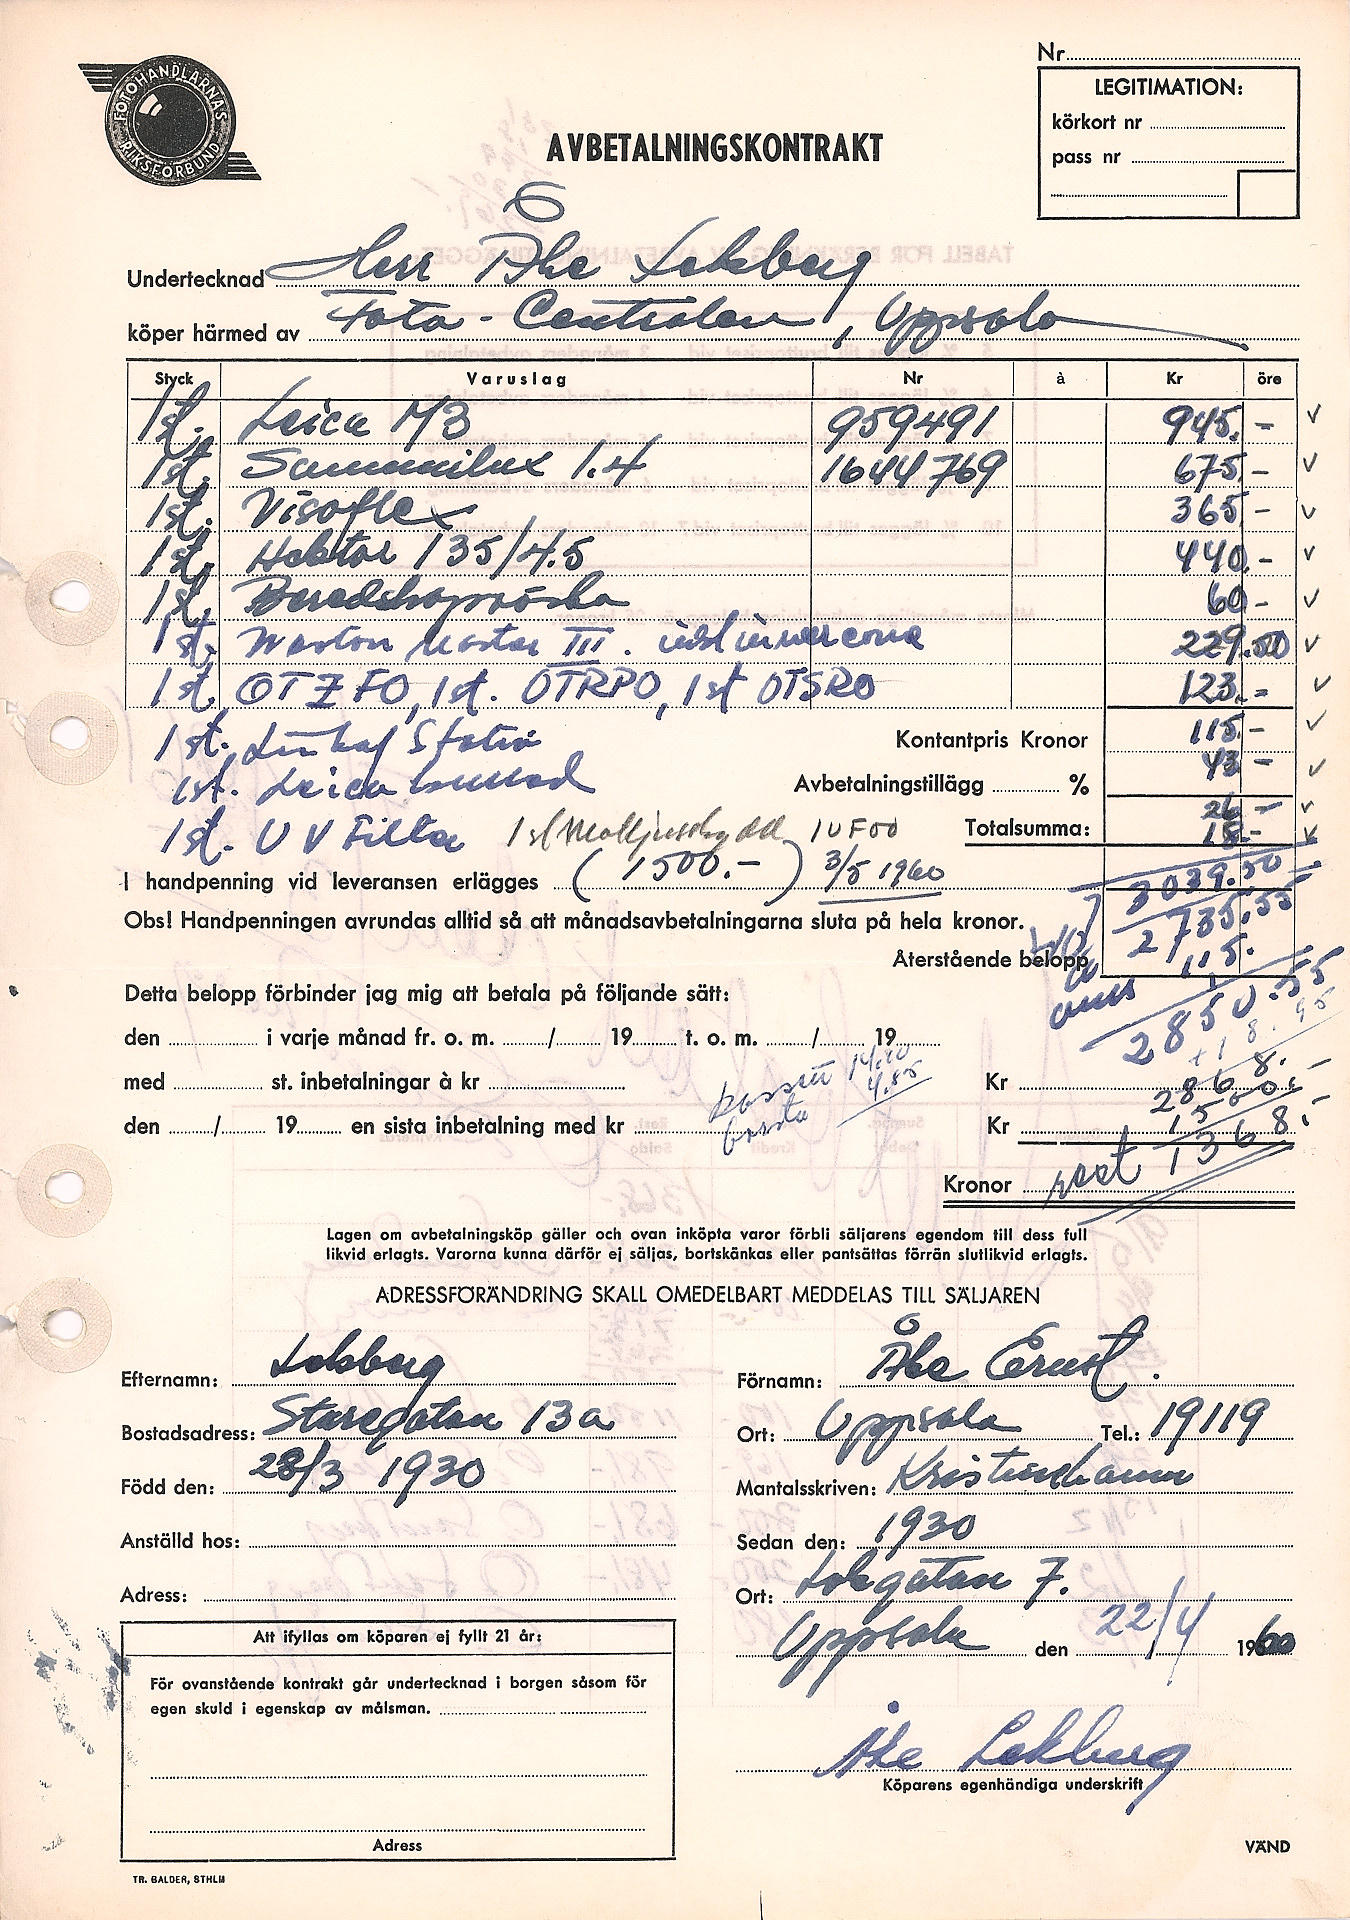 FOTOHANDLARNAS
RIKSFÖRBUND
Nr
LEGITIMATION:
körkort nr
pass nr
AVBETALNINGSKONTRAKT
Undertecknad Herr Åke Lokberg
köper härmed av Foto-Centralen, Uppsala
Styck Varuslag Nr à Kr öre
1st. Leica M3 959491 945.-
1st. Summilux 1.4 1644769 675.-
1st. Visoflex 365.-
1st. Hektor 135/4.5 440.-
1st. Beredskapsväska 60.-
1st. Weston Master III. inkl invercone 229.50
1st. OTZFO, 1st. OTRPO, 1st OTSRO 123.-
1st. Linhof Stativ Kontantpris Kronor 115.-
1st. Leica Avbetalningstillägg % 43.-
26.-
1st. UV Filter 1st Motljusskydd IUFOO Totalsumma: 18.-
I handpenning vid leveransen erlägges (1500.-) 3/5 1960 3039.50
Obs! Handpenningen avrundas alltid så att månadsavbetalningarna sluta på hela kronor. 2735.55
Återstående belopp 115.
Detta belopp förbinder jag mig att betala på följande sätt:
2850.55
den i varje månad fr. o. m. / 19 t. o. m. / 19
+18.95
med st. inbetalningar à kr kassett 14.10 Kr 2868.-
4.85
1500.-
den / 19 en sista inbetalning med kr borste Kr
Kronor rest 1368.-
Lagen om avbetalningsköp gäller och ovan inköpta varor förbli säljarens egendom till dess full
likvid erlagts. Varorna kunna därför ej säljas, bortskänkas eller pantsättas förrän slutlikvid erlagts.
ADRESSFÖRÄNDRING SKALL OMEDELBART MEDDELAS TILL SÄLJAREN
Efternamn: Lokberg Förnamn: Åke Ernst.
Bostadsadress: Staregatan 13a Ort: Uppsala Tel.: 19119
Född den: 28/3 1930 Mantalsskriven: Kristinehamn
Anställd hos: Sedan den: 1930
Adress: Ort: Lokgatan 7.
Uppsala den 22/4 1960
Att ifyllas om köparen ej fyllt 21 år:
För ovanstående kontrakt går undertecknad i borgen såsom för
egen skuld i egenskap av målsman.
Åke Lokberg
Köparens egenhändiga underskrift
Adress
VÄND
TR. BALDER, STHLM